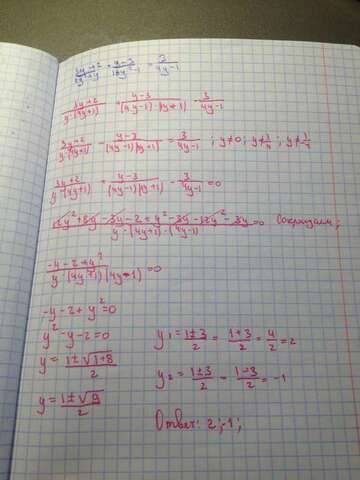 (3y+2)/(4y²+y) + (y-3)/(16y²-1) = 3/(4y-1)
(3y+2)/(y·(4y+1)) + (y-3)/((4y-1)·(4y+1)) = 3/(4y-1)
(3y+2)/(y·(4y+1)) + (y-3)/((4y-1)(4y+1)) = 3/(4y-1) ; y≠0; y≠1/4; y≠1/4
(3y+2)/(y·(4y+1)) + (y-3)/((4y-1)(4y+1)) - 3/(4y-1) = 0
(12y²+8y-3y-2+y²-3y-12y²-3y)/(y·(4y+1)·(4y-1)) = 0 Сокращаем;
(-y-2+y²)/(y·(4y+1)(4y-1)) = 0
-y-2+y²=0
y²-y-2=0 y₁ = (1±3)/2 = (1+3)/2 = 4/2 = 2
y = (1±√(1+8))/2
y₂ = (1±3)/2 = (1-3)/2 = -1
y = (1±√9)/2
Ответ: 2;-1;